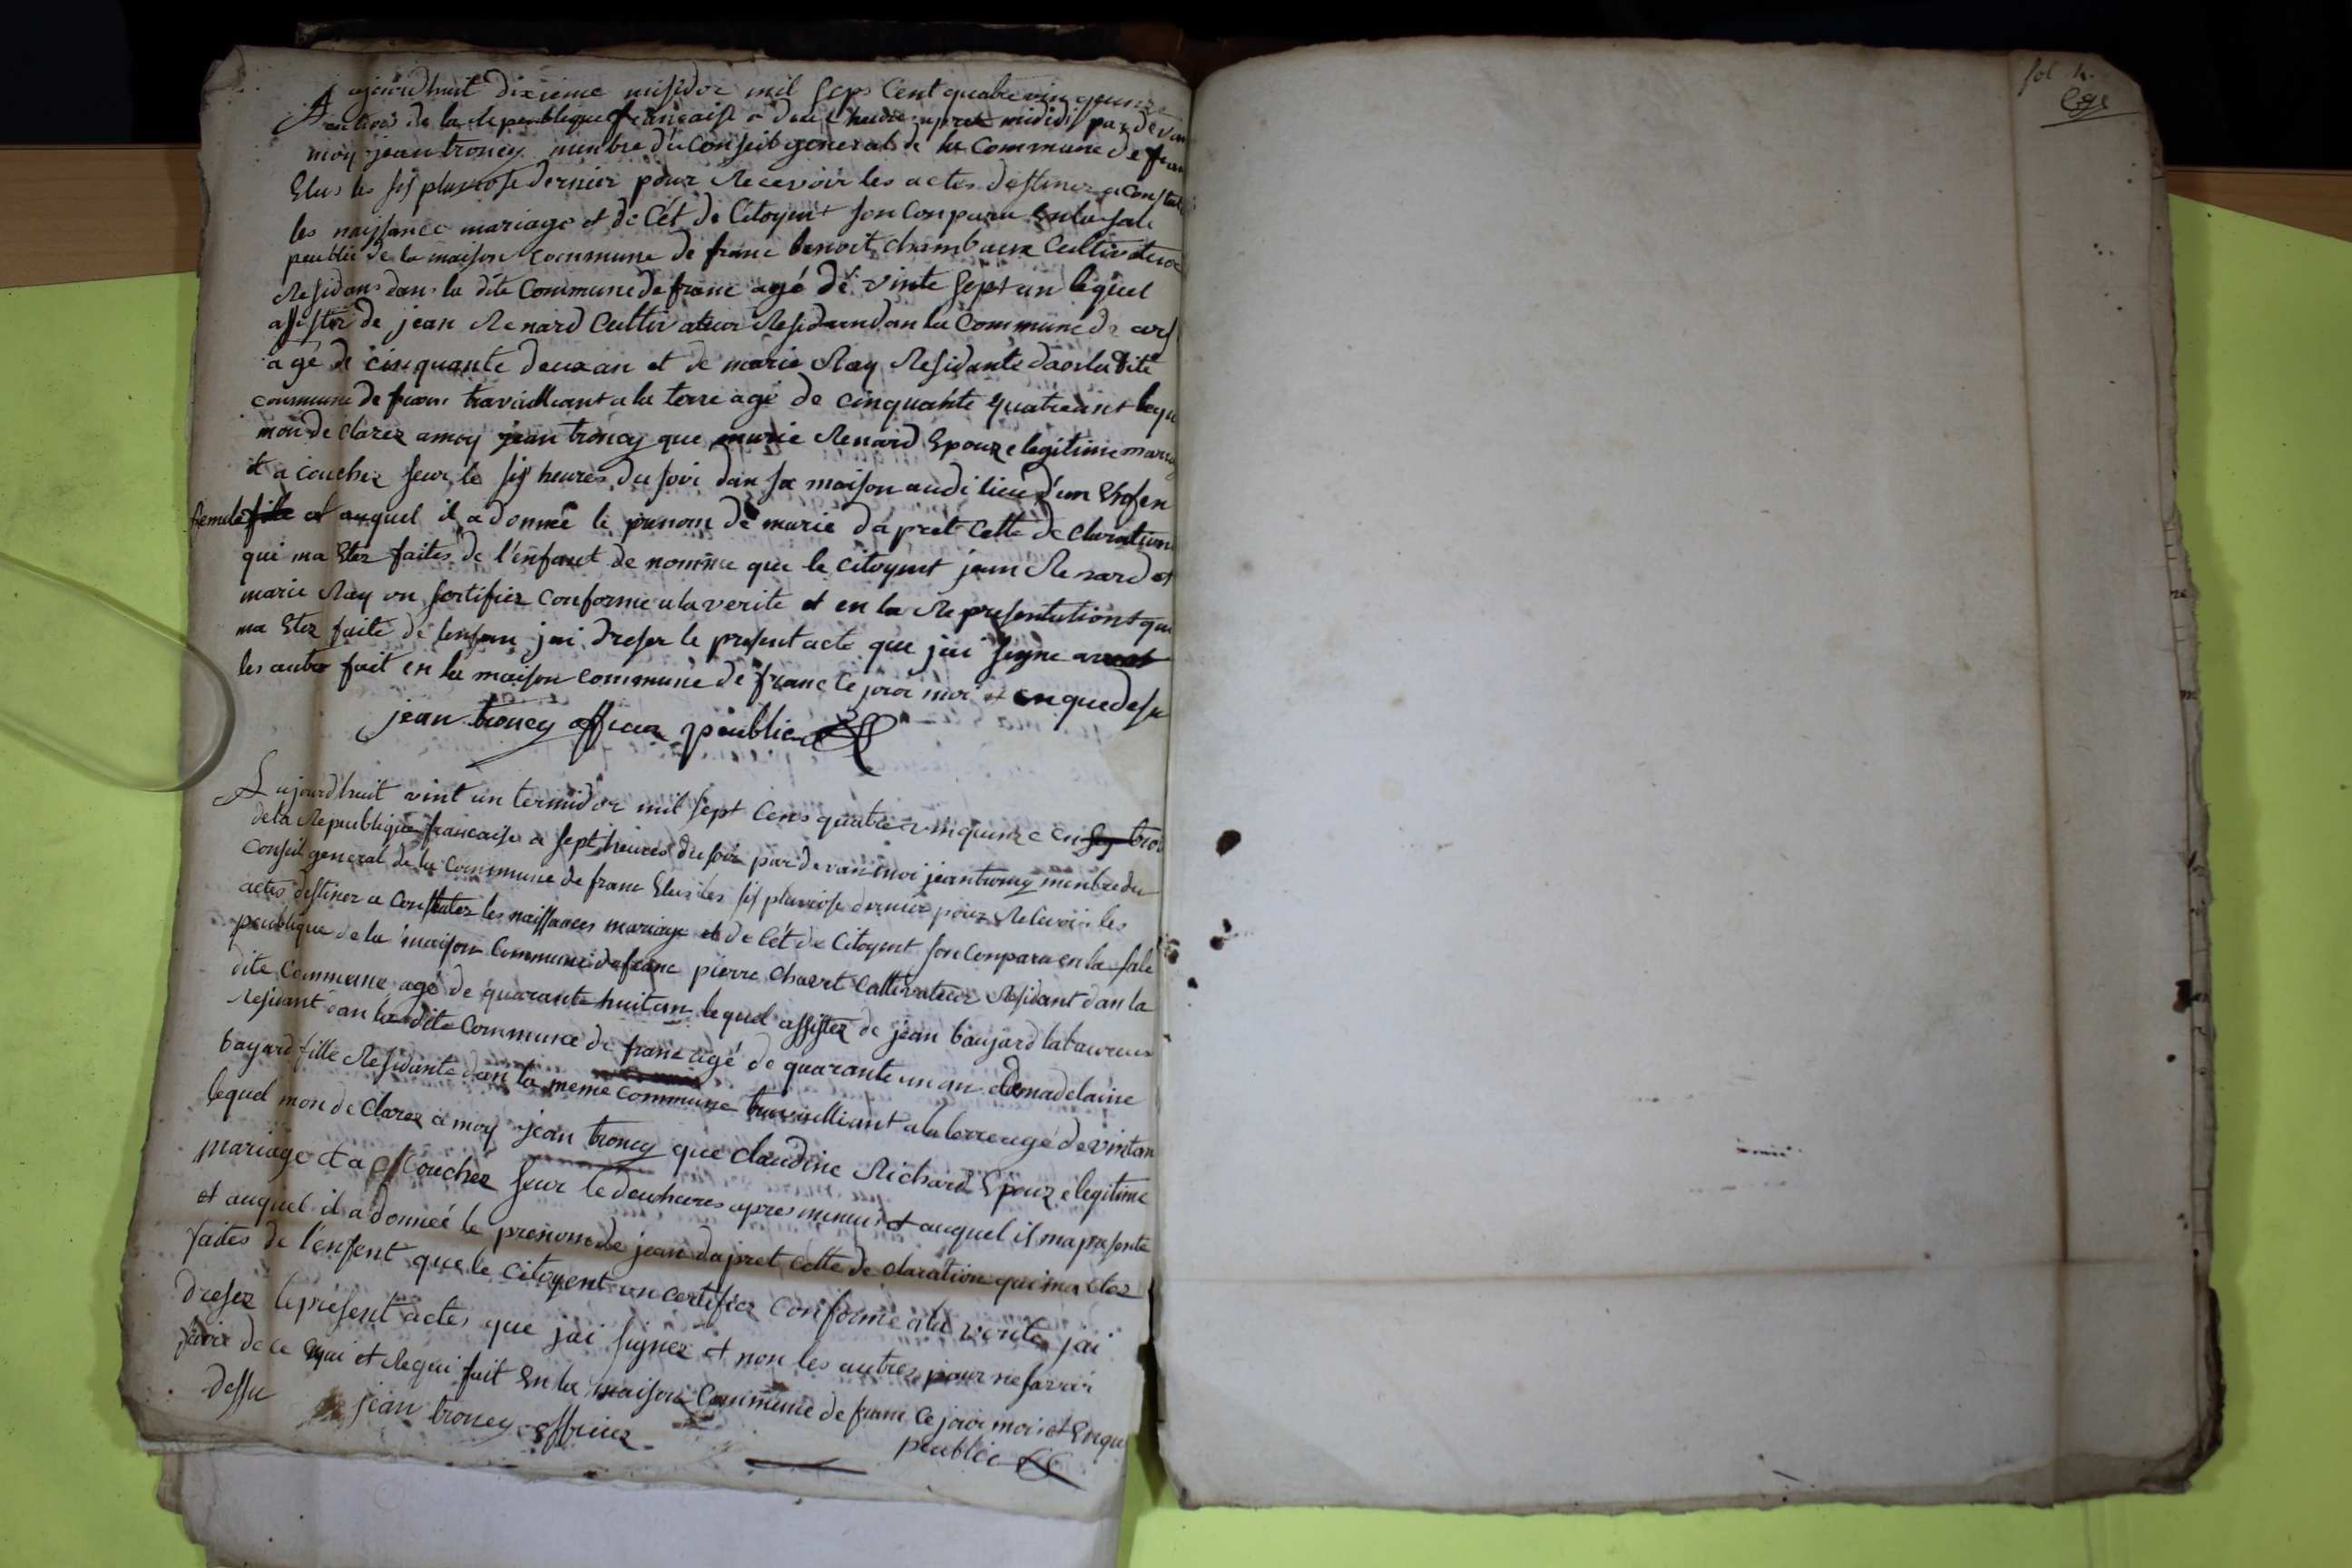 Aujourdhuit dixieme misidor mil seps Cent quatre vin quinze
en trois de la Republique francaise a deux heure apret mididi par devan
moy jean troncy minbre du Conseit general de la Commune de fran
Elus les six pluviose dernier pour Recevoir les actes destinez a Constat
les naissance mariage et de Cét de Citoyent son Conparu En la sale
peublic de la maison Commune de franc benoit chambaux Cultivateur
Residans dans la dite Commune de franc agé de vinte sept an lequel
assister de jean Renard Cultivateur Residan dan la Commune de ars
agé de cinquante deux an et de marie Ray Residante dans la dite
commune de franc travailliant a la terre agé de cinquante quatre ant lequ
mon de Clarez a moy jean troncy que marie Renard Epouze legitime maria
et a coucher seur le six heures du soir dan sa maison audi lieu d'un Enfen
femele et auquel il a donneé le prenom de marie dapret Cette de Claration
qui ma Etez faites de l'enfant de nomme que le citoyent jean Renard et
marie Ray on sertifiez Conforme a la verite et en la Representationt qui
ma Etez faite de lenfan jai dreser le present acte que jai signe
les autre fait en la maison commune de franc Ce jour moi et en que desu
jean troncy officier peublic
Aujourdhuit vint un termidor mil sept Cens quatre vin quinze en trois
de la Republique francaise a sept heures du soir par devan moi jean troncy menbre du
Conseil general de la Commune de franc Elus les six pluviose dernier pour Relevoir les
actes destinez a Constatez les naissances mariage et de Cét de Citoyent son Conparu en la sale
peublique de la maison Commune de franc pierre Cultivateur Residant dan la
dite Commune agé de quarante huit an lequel assistez de jean baujard laboureur
Residant dan la dite Commune de franc agé de quarante un an de madelaine
bayard fille Residante dan la meme Commune travailliant a la terre agé de vint an
lequel mon de Clarez a moy jean troncy que Claudine Richard Epouze legitime
mariage et a Couchez seur le deux heures apres et auquel il ma presente
et auquel il a donneé le prenom de jean dapret Cette de claration qui ma Etez
faites de l'enfent que le citoyent on certifiez Conforme a la verite jai
dresez le present actes que jai signez et non les autres pour ne savoir
favoir de ce qui et Requi fait En la maison Commune de franc Ce jour mois et En que
dessu
jean troncy officier peublic
fol 4.